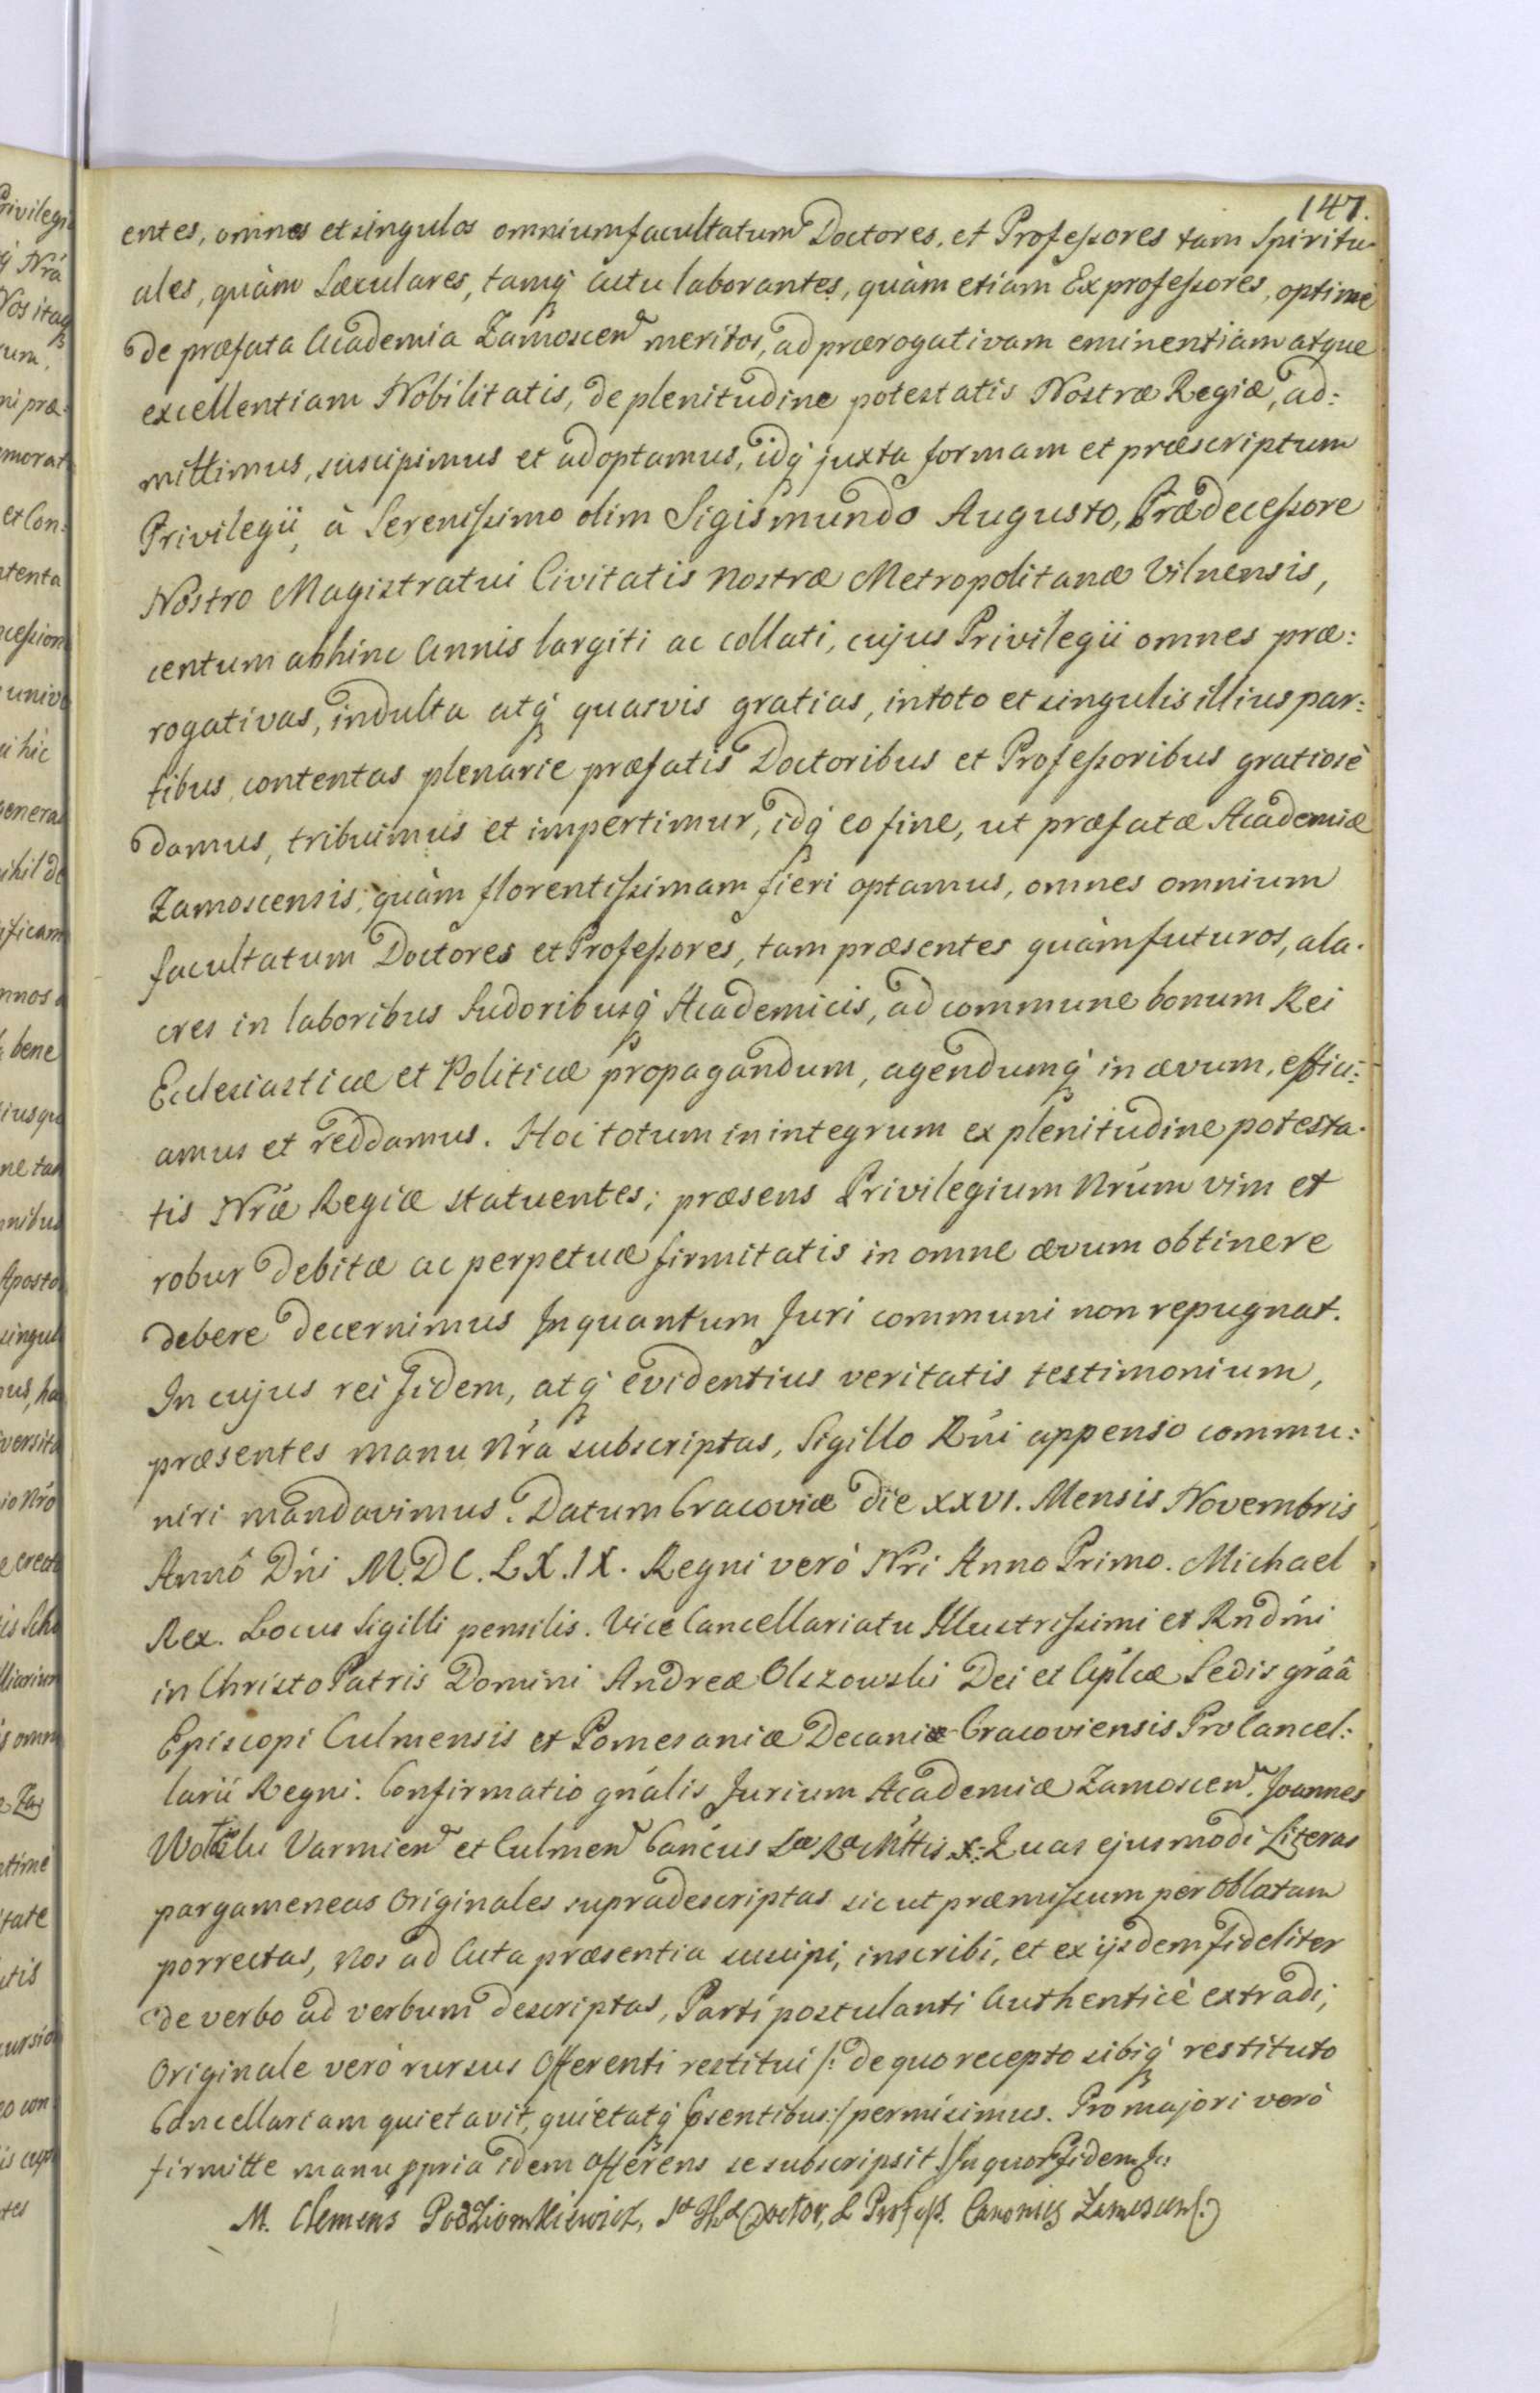 147.
entes, omnes et singulos omnium facultatum Doctores, et Professores tam Spiritu-
ales, quàm Sæculares, tamq; actu laborantes, quàm etiam Exprofessores, optimè
de præfata Academia Zamoscen meritos, ad prærogativam eminentiam atque
excellentiam Nobilitatis, de plenitudine potestatis Nostræ Regiæ, ad:
mittimus, suscipimus et adoptamus, idq; juxta formam et præscriptum
Privilegii, à Serenissimo olim Sigismundo Augusto, Prædecessore
Nostro Magistratui Civitatis nostræ Metropolitanæ Vilnensis,
centum abhinc Annis largiti ac collati, cujus Privilegii omnes præ:
rogativas, indulta atq; quasvis gratias, in toto et singulis illius par:
tibus contentas plenarie præfatis Doctoribus et Professoribus gratiosè
damus, tribuimus et impertimur, idq; eo fine, ut præfatæ Academiæ
Zamoscensis, quàm florentissimam fieri optamus, omnes omnium
facultatum Doctores et Professores, tam præsentes quàm futuros, ala-
cres in laboribus Sudoribusq; Academicis, ad commune bonum Rei
Ecclesiasticæ et Politicæ propagandum, agendumq; in ævum, effici:
amus et reddamus. Hoc totum in integrum ex plenitudine potesta-
tis Nræ Regiæ statuentes; præsens Privilegium Nrum vim et
robur debitæ ac perpetuæ firmitatis in omne ævum obtinere
debere decernimus Inquantum Juri communi non repugnat.
In cujus rei fidem, atq; evidentius veritatis testimonium,
præsentes manu Nra subscriptas, Sigillo Rni appenso commu:
niri mandavimus. Datum Cracoviæ die XXVI. Mensis Novembris
Annô Dni M.DC.LX.IX. Regni verò Nri Anno Primo. Michael
Rex. Locus Sigilli pensilis. Vice Cancellariatu Illustrissimi et Rndmi
in Christo Patris Domini Andreæ Olszowski Dei et Aplicæ Sedis graâ
Episcopi Culmensis et Pomesaniæ Decani Cracoviensis Procancel:
larii Regni. Confirmatio gnalis Jurium Academiæ Zamoscen. Joannes
Varmien et Culmen Cancus Sæ Ræ Mttis Quas ejusmodi Literas
pargameneas Originales supradescriptas sicut præmissum per Oblatam
porrectas, Nos ad Acta præsentia suscipi, inscribi, et ex ijsdem fideliter
de verbo ad verbum descriptas, Parti postulanti Authenticè extradi;
Originale verò rursus Offerenti restitui /: de quo recepto sibiq; restituto
Cancellariam quietavit, quietatq; psentibus :/ permisimus. Pro majori verò
firmitte manu ppria idem Offerens se subscripsit / In quor fidem
M. Clemens Podziomkiewicz, Doctor, & Profess. Canonicg Zamoscen